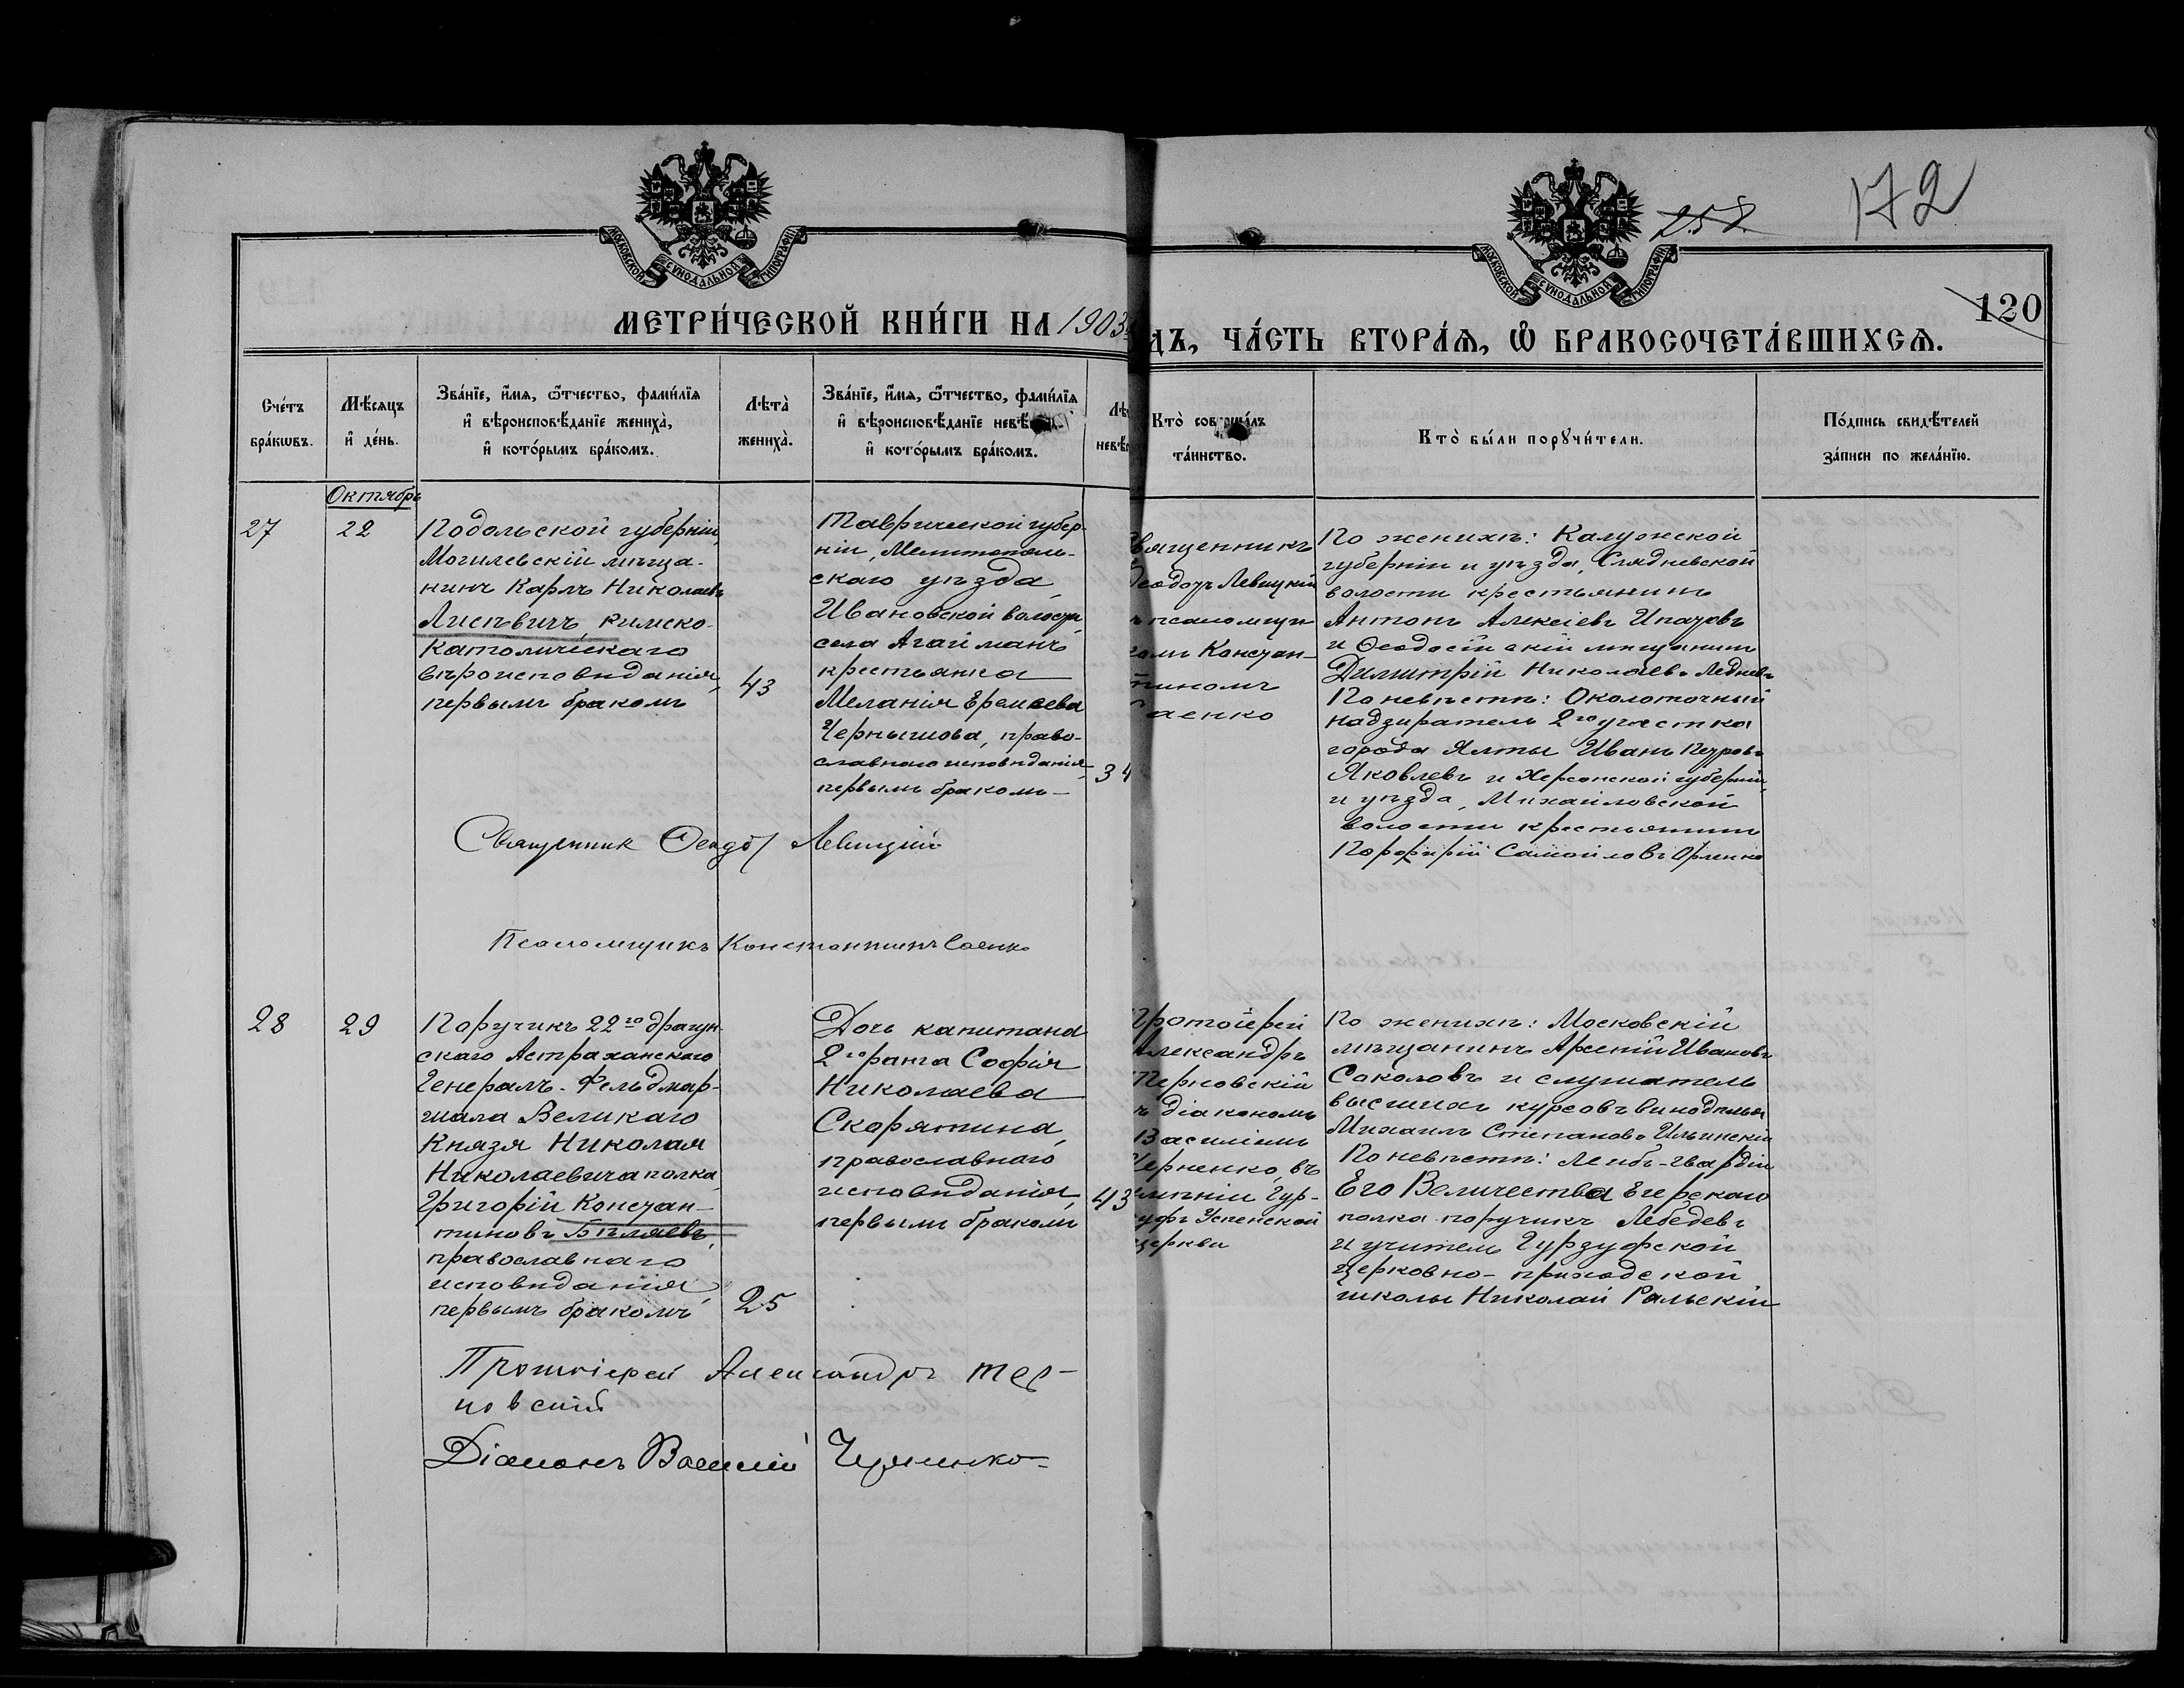 172
258.
120
МОСКОВСКОЙ СѴНОДАЛЬНОЙ ТИПОГРАФІИ
МОСКОВСКОЙ СѴНОДАЛЬНОЙ ТИПОГРАФІИ
МЕТРИ́ЧЕСКОЙ КНИ́ГИ НА 1903
ДЪ, ЧА́СТЬ ВТОРА́Я, Ѡ БРАКОСОЧЕТА́ВШИХСЯ.
Сче́тъ
бра́кѡвъ.
Мѣ́сяцъ
и҆ де́нь.
Зва́нїе, и҆́мя, ѻ҆́тчество, фами́лїя
и҆ вѣроисповѣ́данїе жениха̀,
и҆ кото́рымъ бра́комъ.
Лѣта̀
жениха̀.
Зва́нїе, и҆́мя, ѻ҆́тчество, фами́лїя
и҆ вѣроисповѣ́данїе невѣ́
и҆ кото́рымъ бра́комъ.
Лѣ
невѣ
Кто̀ совершалъ
та́инство.
Кто̀ бы́ли порꙋчи́тели.
По́дпись свидѣ́телей
за́писи по жела́нїю.
Октябрь
27
22
Подольской губерніи,
Могилевскій мѣща-
нинъ Карлъ Николаевъ
Лисѣвичъ, римско-
католическаго
вѣроисповѣданія,
первымъ бракомъ
43
Таврической губер-
ніи, Мелитополь-
скаго уѣзда,
Ивановской волости,
села Агайманъ
крестьянка
Меланія Еремѣева
Чернышова, право-
славнаго исповѣданія,
первымъ бракомъ
34
Священникъ
Ѳеодоръ Левицкій
ъ псаломщи
комъ Констан-
тиномъ
Саенко
По женихѣ: Калужской
губерніи и уѣзда, Слядневской
волости крестьянинъ
Антонъ Алексіевъ Ипатовъ
и Ѳеодосійскій мѣщанинъ
Димитрій Николаевъ Ледневъ
По невѣстѣ: Околоточный
надзиратель 2го участка
города Ялты Иванъ Петровъ
Яковлевъ и Херсонской губерніи,
и уѣзда, Михайловской
волости крестьянинъ
Порфирій Самойловъ Орленко
Священник Ѳеодоръ Левицкій
Псаломщикъ Константинъ Саенко
28
29
Поручикъ 22го драгун-
скаго Астраханскаго
Генералъ-Фельдмар-
шала Великаго
Князя Николая
Николаевича полка,
Григорій Констан-
тиновъ Бѣляевъ,
православнаго
исповѣданія,
первымъ бракомъ
25
Дочь капитана
2го ранга Софія
Николаева
Скорятина,
православнаго
исповѣданія,
первымъ бракомъ
43
Протоіерей
Александръ
Терновскій
ъ діакономъ
Василіемъ
Черненко, въ
имѣніи Гур-
зуфъ Успенской
церкви
По женихѣ: Московскій
мѣщанинъ Арсеній Ивановъ
Соколовъ и слушатель
высшихъ курсовъ винодѣлья
Михаилъ Степановъ Ильинскій
По невѣстѣ: Лейбъ-гвардіи
Его Величества Егерскаго
полка поручикъ Лебедевъ
и учитель Гурзуфской
церковно-приходской
школы Николай Ральскій
Протоіерей Александръ Тер-
новскій
Діаконъ Василій Черненко